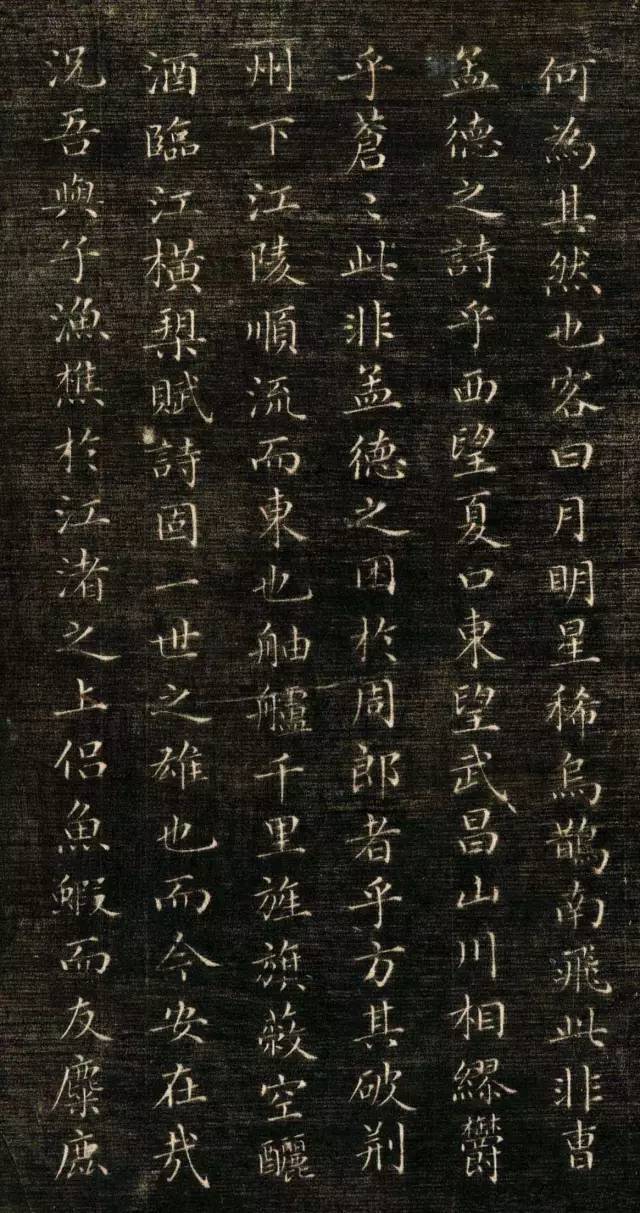 何為其然也客曰月明星稀烏鵲南飛此非曹
孟德之詩乎西望夏口東望武昌山川相繆鬱
乎蒼〻此非孟德之困於周郎者乎方其破荆
州下江陵順流而東也舳艫千里旌旗蔽空釃
酒臨江橫槊賦詩固一世之雄也而今安在哉
況吾與子漁樵於江渚之上侶魚鰕而友麋鹿